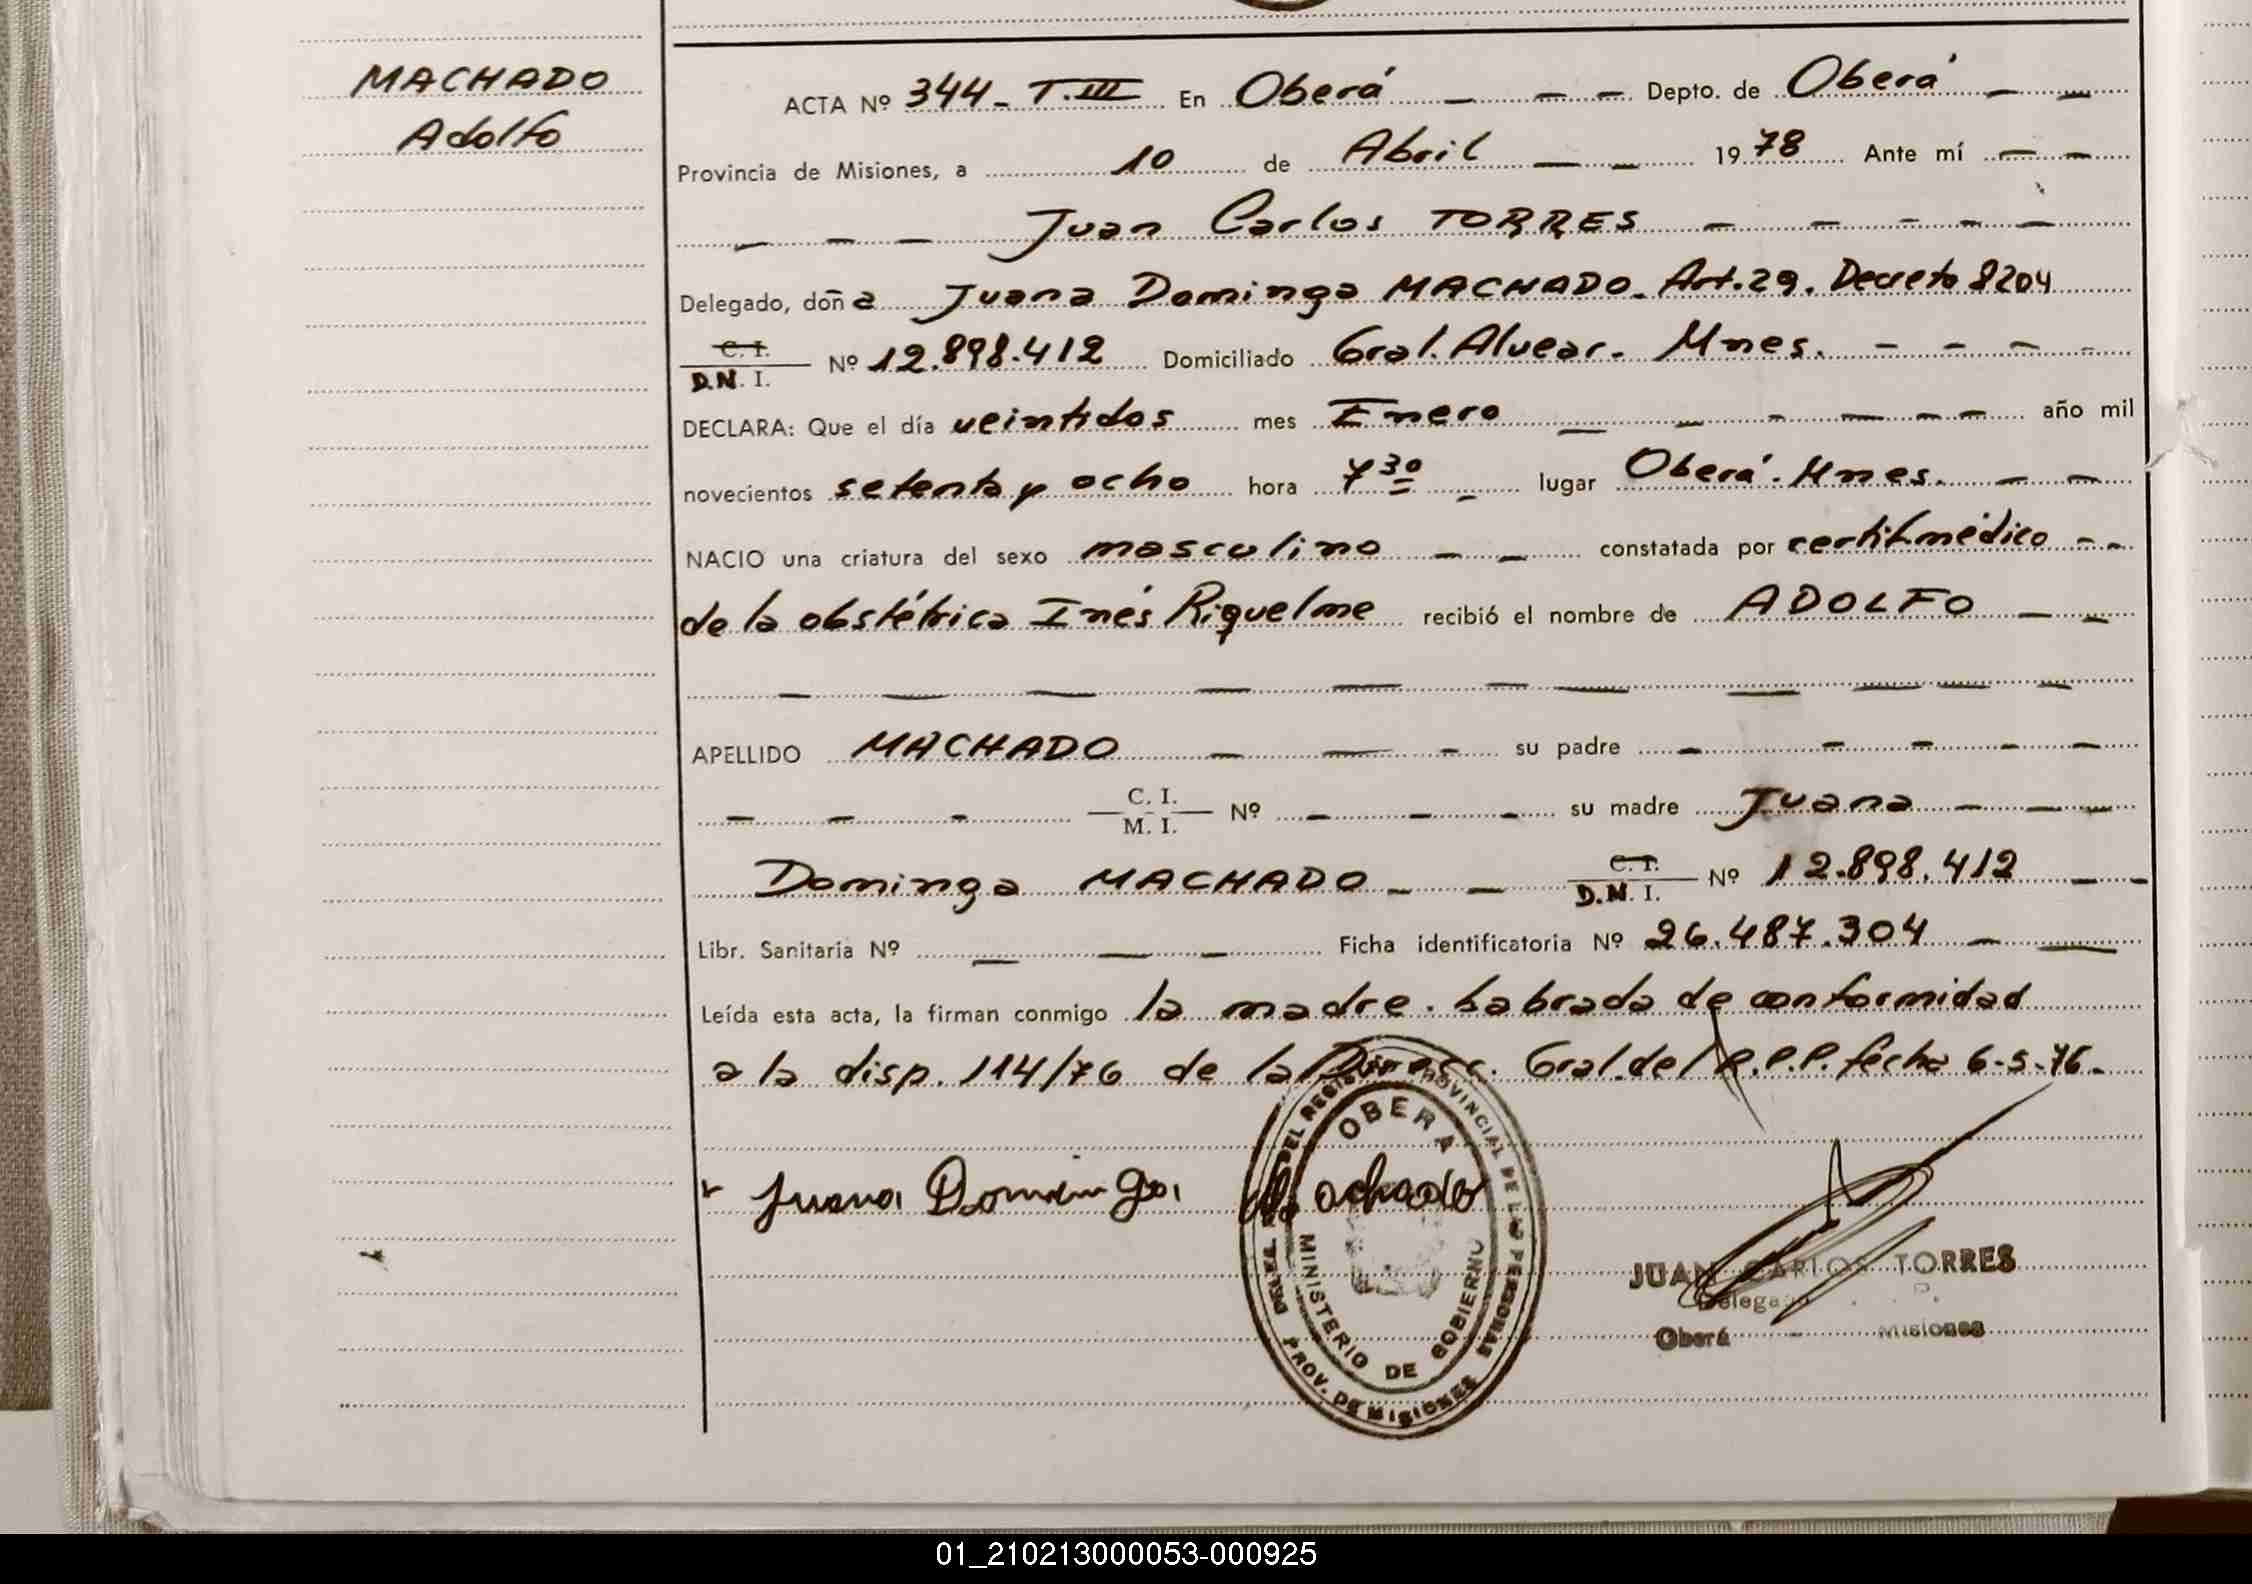 MACHADO
Adolfo
ACTA Nº 344 - T. III En Oberá — — — Depto. de Oberá — —
Provincia de Misiones, a 10 de Abril — — 1978 Ante mí — —
— — — Juan Carlos TORRES — — — — —
Delegado, doña Juana Dominga MACHADO. Art. 29. Decreto 8204
C. I.
D.N. I. Nº 12.898.412 Domiciliado Gral. Alvear. Mnes. — — — —
DECLARA: Que el día veintidos mes Enero — — — — — — año mil
novecientos setenta y ocho hora 7 30 — lugar Oberá. Mnes. — —
NACIO una criatura del sexo masculino — — constatada por certif. médico — —
de la obstétrica Inés Riquelme recibió el nombre de ADOLFO — —
— — — — — — — — — — —
APELLIDO MACHADO — — — su padre — — — — —
— — — C. I.
M. I. Nº — — — su madre Juana — — —
Dominga MACHADO — — C. I.
D.N. I. Nº 12.898.412 — —
Libr. Sanitaria Nº — — — Ficha identificatoria Nº 26.487.304 — —
Leída esta acta, la firman conmigo la madre. Labrada de conformidad
a la disp. 114/76 de la Direcc. Gral. del R.P.P. fecha 6-5-76.
Juana Dominga Machado
DEL REGISTRO PROVINCIAL DE LAS PERSONAS
OBERA
MINISTERIO DE GOBIERNO
PROV. DE MISIONES
JUAN CARLOS TORRES
Delegado
Oberá - Misiones
01_210213000053-000925